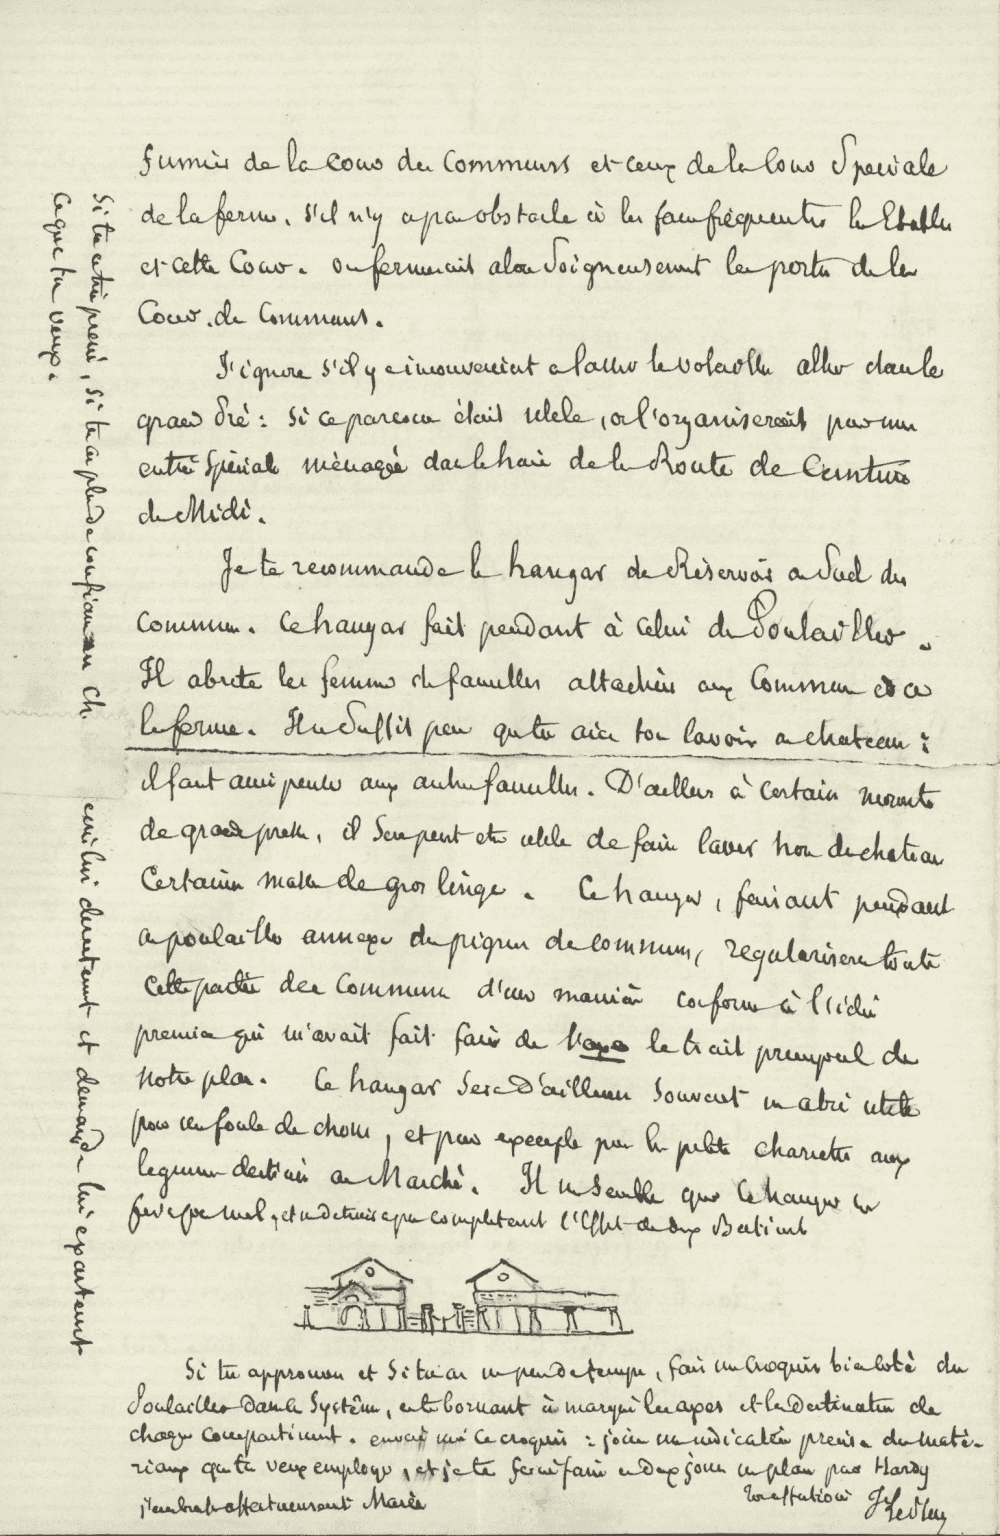 fumiers de la cour des Communs et ceux de la Cour Speciale
de la ferme. s'il n'y a pas obstacle à les faire fréquenter les Etables
et cette Cour. on fermerait alors soigneusement les portes de la
Cour des Communs.
J'ignore s'il y a inconvenient a laisser les volailles aller dans le
grand Pré : si ce parcours était utile, on l'organiserait par une
entrée spéciale ménagée dans la haie de la Route de Ceinture
du Midi.
Je te recommande le hangar du Réservoir au Sud des
communs. Ce hangar fait pendant à celui du Poulailler.
Il abrite les femmes des familles attachées aux Communs et a
la ferme. Il ne suffit pas que tu aies ton lavoir au chateau :
il faut aussi penser aux autres familles. D'ailleurs à certains moments
de grande presse, il sera peut etre utile de faire laver hors du chateau
Certaines masses de gros linge. Ce hangar, faisant pendant
au poulailler annexe du pignon des communs, regularisera toute
cette partie des Communs d'une manière conforme à l'idée
premiere qui m'avait fait faire de l'axe le trait principal de
notre plan. Ce hangar sera D'ailleurs souvent un abri utile
pour une foule de choses, et par exemple pour les petites charrettes aux
legumes destinés au Marché. Il me semble que ce hangar ne
fera pas mal, et ne detruira pas completement l'effet des deux Batiments
Si tu approuves et si tu as un peu de temps, fais un croquis bien coté du
Poulailler dans ce Système, en te bornant à marquer les axes et la destination de
chaque compartiment. envoie moi ce croquis : joins une indication precise des maté-
riaux que tu veux employer, et je te ferai faire en deux jours un plan par Hardy
j'embrasse affectueusement Marie
tout à toi
F Le Play
Si tu es très pressé, si tu as plus de confiance en Ch.
ecris lui directement et demande lui exactement
ce que tu veux.